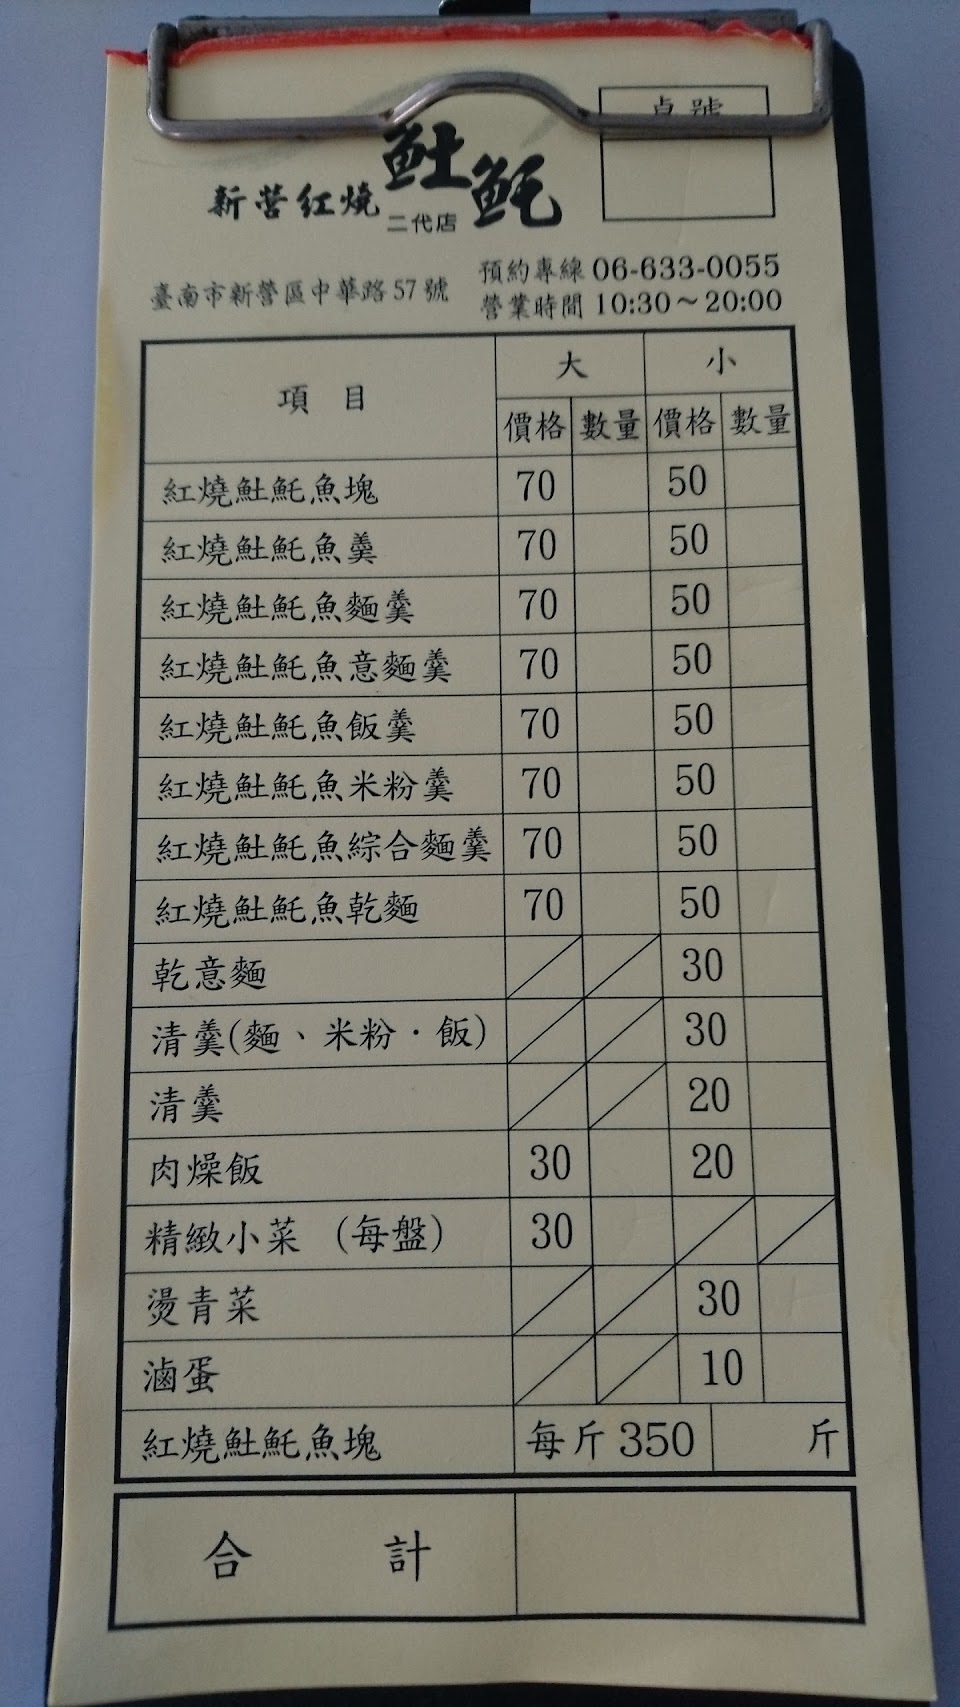 桌號
新營紅燒 𩵚魠
二代店
預約專線 06-633-0055
臺南市新營區中華路57號
營業時間 10:30～20:00
項目 大 小
價格 數量 價格 數量
紅燒𩵚魠魚塊 70 50
紅燒𩵚魠魚羹 70 50
紅燒𩵚魠魚麵羹 70 50
紅燒𩵚魠魚意麵羹 70 50
紅燒𩵚魠魚飯羹 70 50
紅燒𩵚魠魚米粉羹 70 50
紅燒𩵚魠魚綜合麵羹 70 50
紅燒𩵚魠魚乾麵 70 50
乾意麵 30
清羹(麵、米粉・飯) 30
清羹 20
肉燥飯 30 20
精緻小菜 (每盤) 30
燙青菜 30
滷蛋 10
紅燒𩵚魠魚塊 每斤350 斤
合計